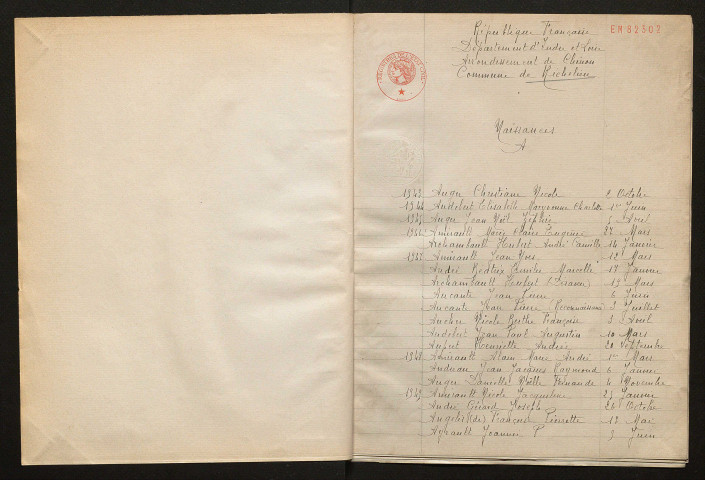 République Française
EM 82302
Département d'Indre et Loire
Arrondissement de Chinon
Commune de Richelieu
Naissances
A
1943 Auger Christiane Nicole 2 Octobre
1944 Audebert Elisabeth Charlotte 1er Juin
1945 Auger Jean Noël 5 Avril
1946 Amirault Marie Claire Eugénie 27 Mars
Archambault Hubert André Camille 14 Janvier
1947 Amirault Jean Yves 12 Mars
André Béatrix Marcelle 17 Janvier
Archambault Hubert 13 Mars
Aucante Jean Pierre 6 Juin
Aucante Jean Pierre (Reconnaissance) 3 Juillet
Aucher Nicole Berthe Françoise 8 Avril
Audebert Jean Paul Augustin 10 Mars
Aubert Henriette Andrée 20 Septembre
1948 Amirault Alain Marie André 1er Mars
Jean Jacques Raymond 6 Janvier
Auger Danielle Noëlle Fernande 4 Novembre
1949 Amirault Nicole Jacqueline 23 Janvier
André Gérard Joseph 26 Octobre
Angelis (de) Françoise Pierrette 13 Mai
Ayrault Jeannine P 3 Juin